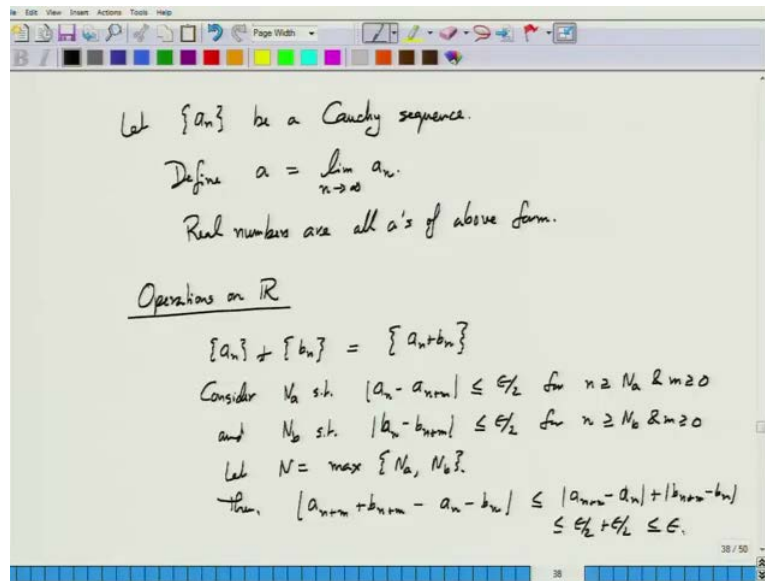 File Edit View Insert Actions Tools Help
Page Width
B I
Let {an} be a Cauchy sequence.
Define a = lim n→∞ an.
Real numbers are all a's of above form.
Operations on ℝ
{an} + {bn} = {an+bn}
Consider Na s.t. |an - an+m| ≤ ϵ/2 for n ≥ Na & m≥0
and Nb s.t. |bn - bn+m| ≤ ϵ/2 for n ≥ Nb & m≥0
Let N = max {Na, Nb}.
Then, |an+m + bn+m - an - bn| ≤ |an+m - an| + |bn+m - bn|
≤ ϵ/2 + ϵ/2 ≤ ϵ.
38 / 50
38